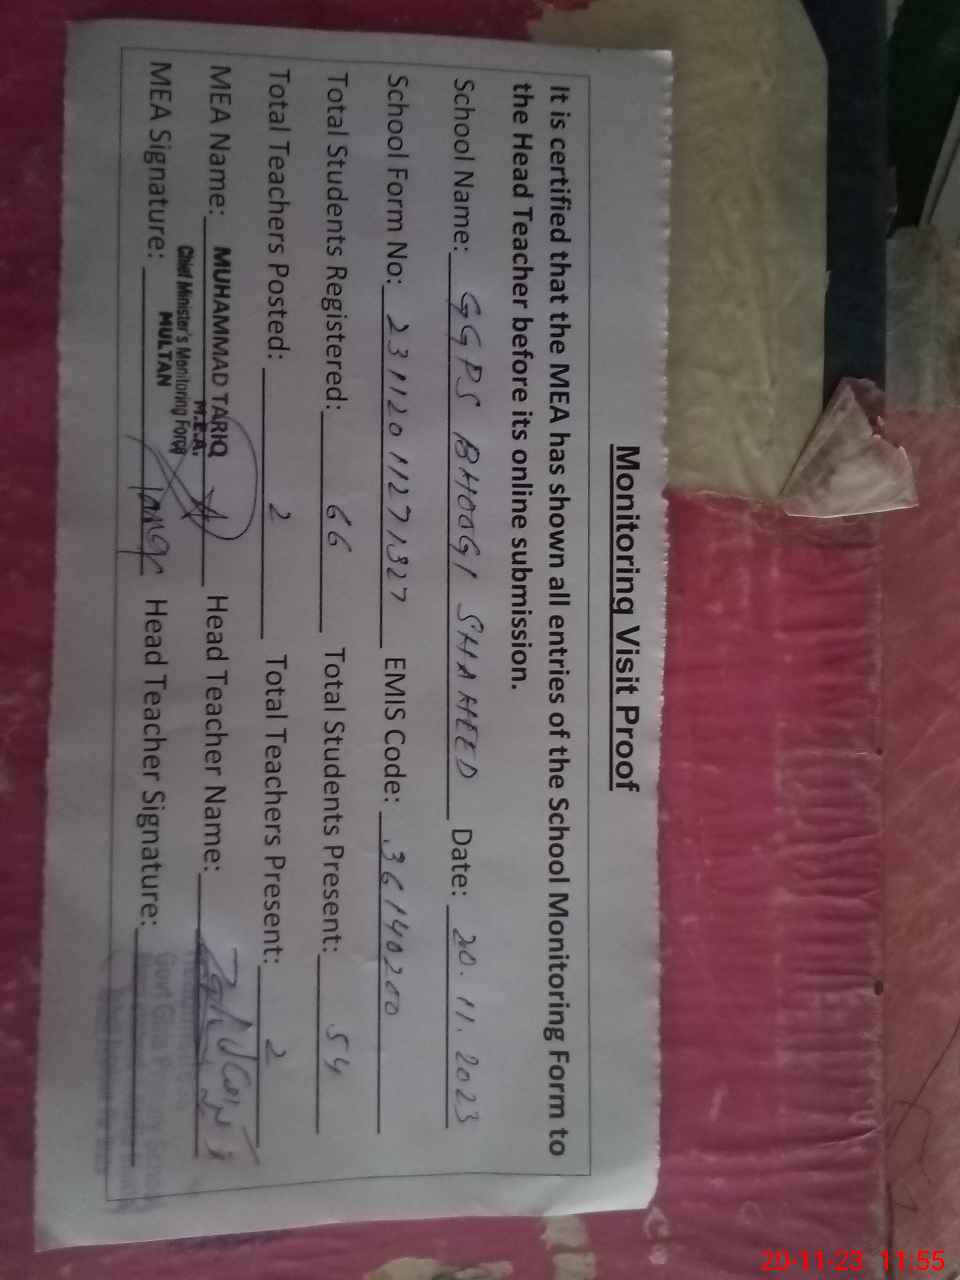 Monitoring Visit Proof
It is certified that the MEA has shown all entries of the School Monitoring Form to
the Head Teacher before its online submission.
School Name: GGPS BHOOGI SHAHEED Date: 20.11.2023
School Form No: 23112011271327 EMIS Code: 36140200
Total Students Registered: 66 Total Students Present: 54
Total Teachers Posted: 2 Total Teachers Present: 2
MEA Name: MUHAMMAD TARIQ Head Teacher Name:
M.E.A.
Chief Minister's Monitoring Force
MULTAN
MEA Signature: Tariq Head Teacher Signature:
Govt Girls Primary School
20-11-23 11:55